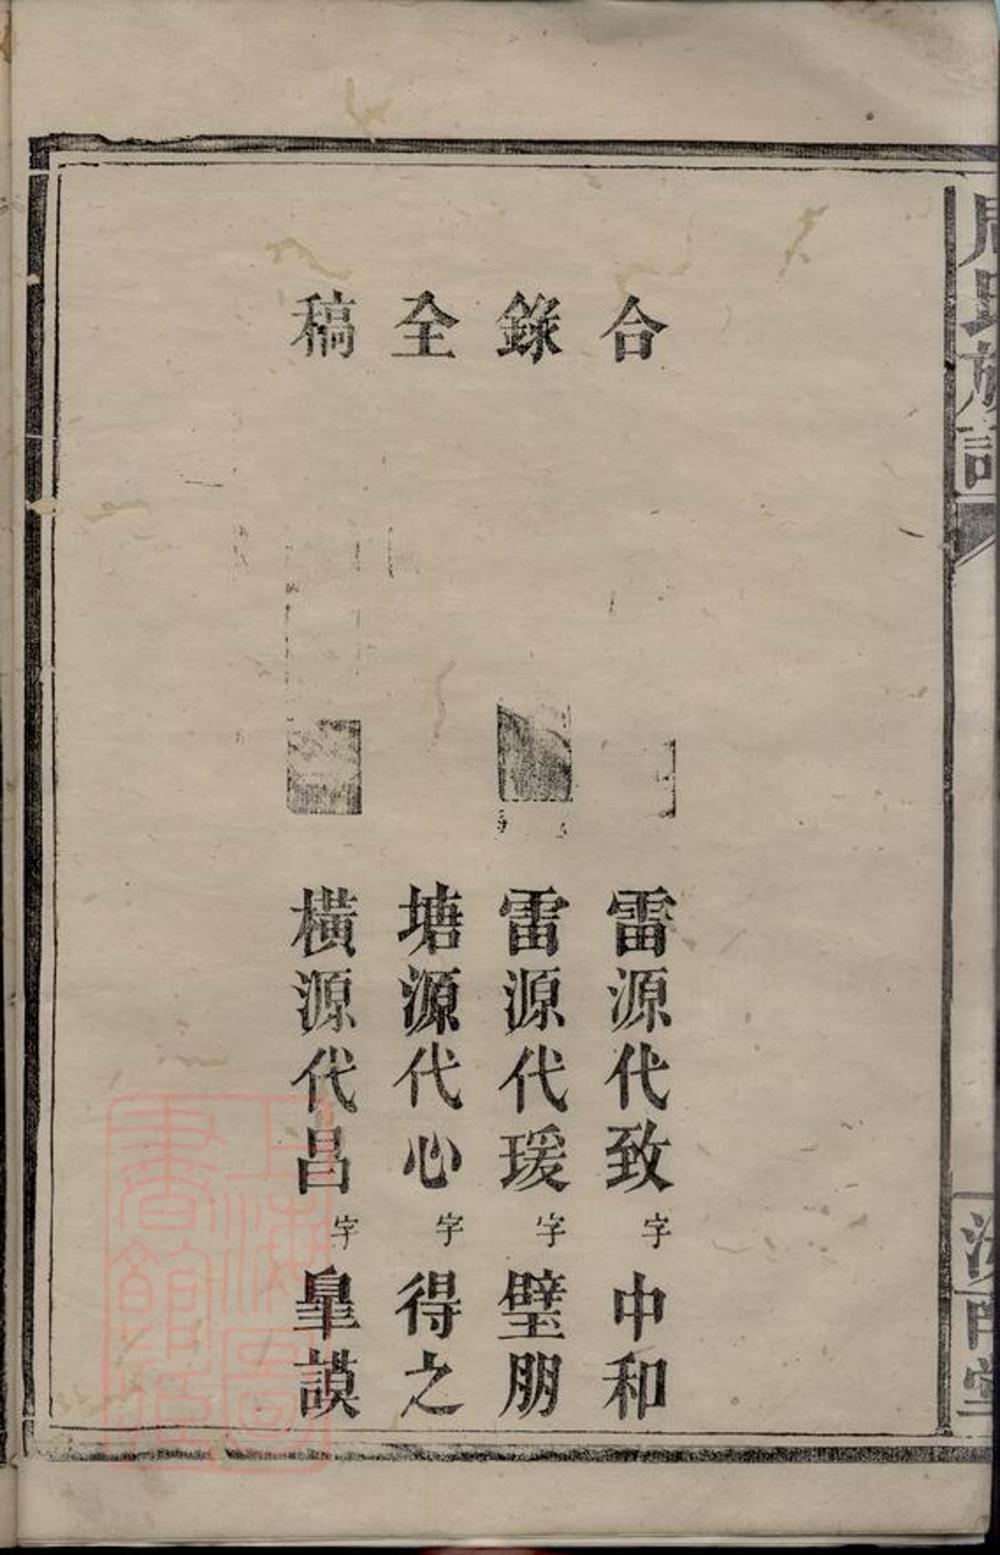 周氏族譜
合 雷源代致字中和
錄 雷源代瑗字璧朋
全 塘源代心字得之
稿 橫源代昌字皐謨
上海圖書館藏